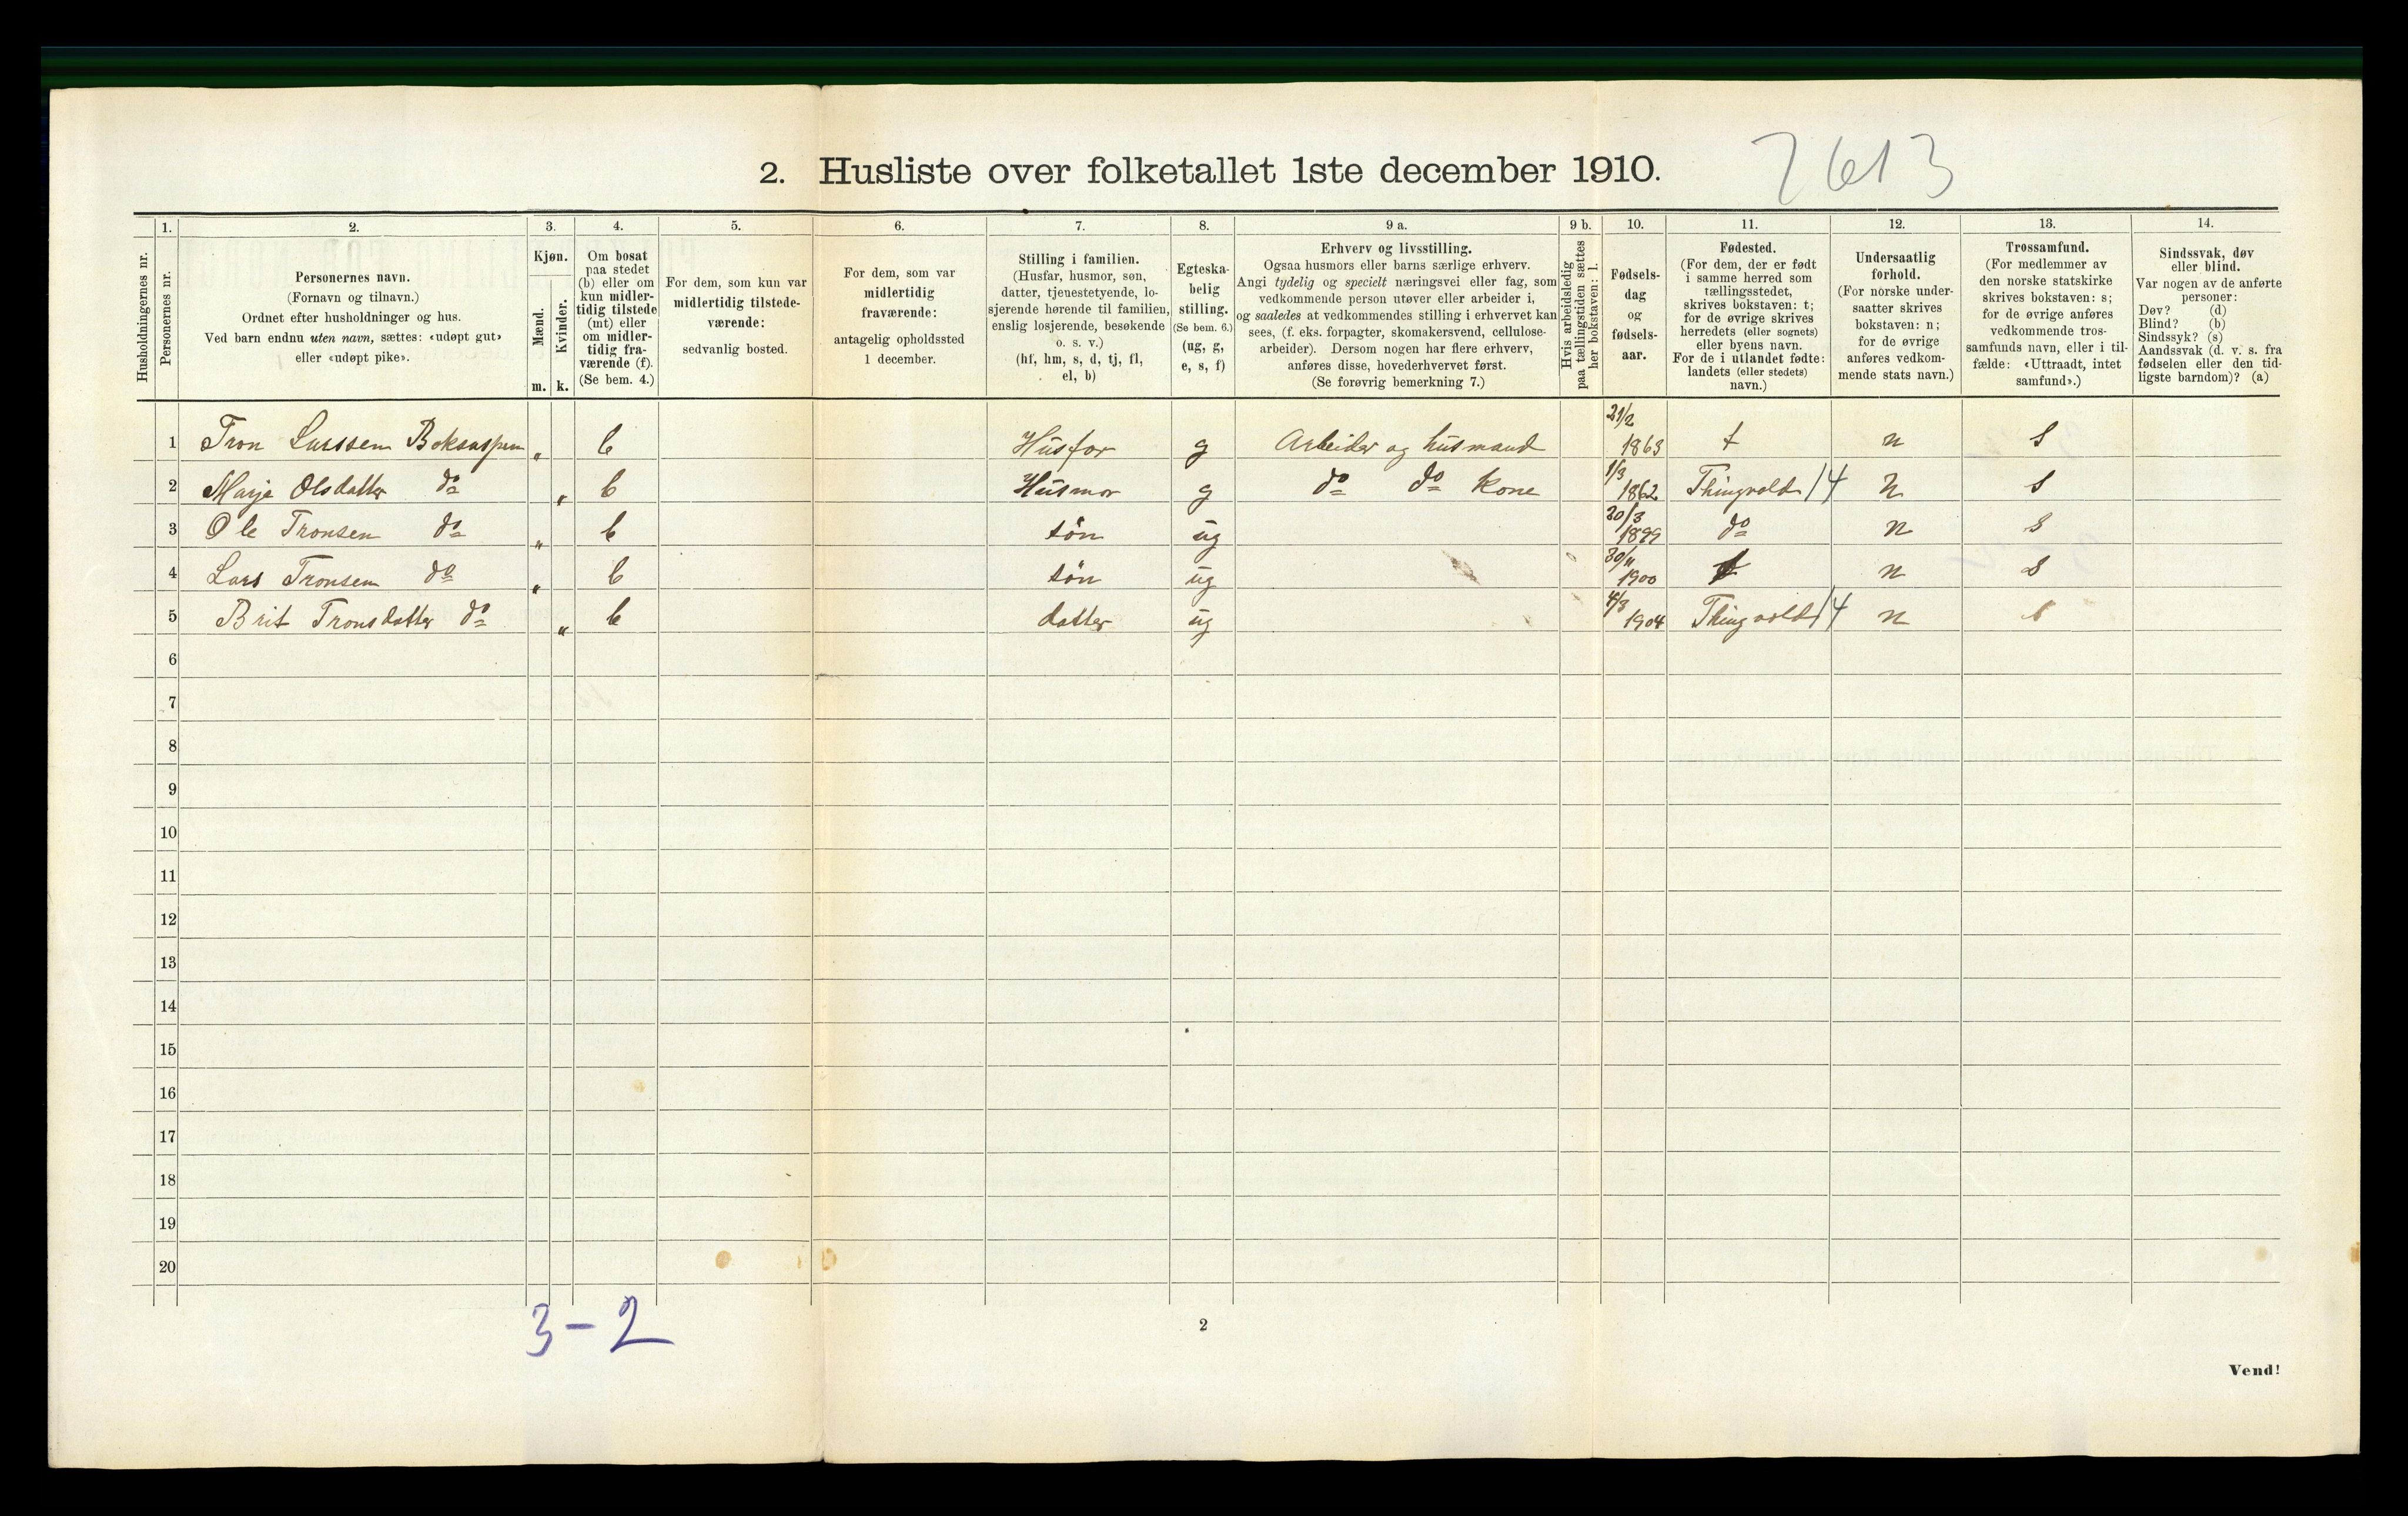 2. Husliste over folketallet 1ste december 1910.
7613
Husholdningernes nr.
1.
Personernes nr.
2.
Personernes navn.
(Fornavn og tilnavn.)
Ordnet efter husholdninger og hus.
Ved barn endnu uten navn, sættes: «udøpt gut»
eller «udøpt pike».
3.
Kjøn.
Mænd.
Kvinder.
m. k.
4.
Om bosat
paa stedet
(b) eller om
kun midler-
tidig tilstede
(mt) eller
om midler-
tidig fra-
værende (f).
(Se bem. 4.)
5.
For dem, som kun var
midlertidig tilstede-
værende:
sedvanlig bosted.
6.
For dem, som var
midlertidig
fraværende:
antagelig opholdssted
1 december.
7.
Stilling i familien.
(Husfar, husmor, søn,
datter, tjenestetyende, lo-
sjerende hørende til familien,
enslig losjerende, besøkende
o. s. v.)
(hf, hm, s, d, tj, fl,
el, b)
8.
Egteska-
belig
stilling.
(Se bem. 6.)
(ug, g,
e, s, f)
9 a.
Erhverv og livsstilling.
Ogsaa husmors eller barns særlige erhverv.
Angi tydelig og specielt næringsvei eller fag, som
vedkommende person utøver eller arbeider i,
og saaledes at vedkommendes stilling i erhvervet kan
sees, (f. eks. forpagter, skomakersvend, cellulose-
arbeider). Dersom nogen har flere erhverv,
anføres disse, hovederhvervet først.
(Se forøvrig bemerkning 7.)
9 b.
Hvis arbeidsledig
paa tællingstiden sættes
her bokstaven: l.
10.
Fødsels-
dag
og
fødsels-
aar.
11.
Fødested.
(For dem, der er født
i samme herred som
tællingsstedet,
skrives bokstaven: t;
for de øvrige skrives
herredets (eller sognets)
eller byens navn.
For de i utlandet fødte:
landets (eller stedets)
navn.)
12.
Undersaatlig
forhold.
(For norske under-
saatter skrives
bokstaven: n;
for de øvrige
anføres vedkom-
mende stats navn.)
13.
Trossamfund.
(For medlemmer av
den norske statskirke
skrives bokstaven: s;
for de øvrige anføres
vedkommende tros-
samfunds navn, eller i til-
fælde: «Uttraadt, intet
samfund».)
14.
Sindssvak, døv
eller blind.
Var nogen av de anførte
personer:
Døv? (d)
Blind? (b)
Sindssyk? (s)
Aandssvak (d. v. s. fra
fødselen eller den tid-
ligste barndom)? (a)
1 Tron Larssen Boksaspen „ b Husfar g Arbeider og husmand 21/2 1863 t n s
2 Marje Olsdatter do „ b Husmor g do do Kone 1/3 1862 Thingvold 14 n s
3 Ole Tronsen do „ b søn ug 30/3 1899 do n s
4 Lars Tronsen do „ b søn ug 30/11 1900 t n s
5 Brit Tronsdatter do „ b datter ug 4/3 1904 Thingvold 14 n s
6
7
8
9
10
11
12
13
14
15
16
17
18
19
20
3-2
2
Vend!